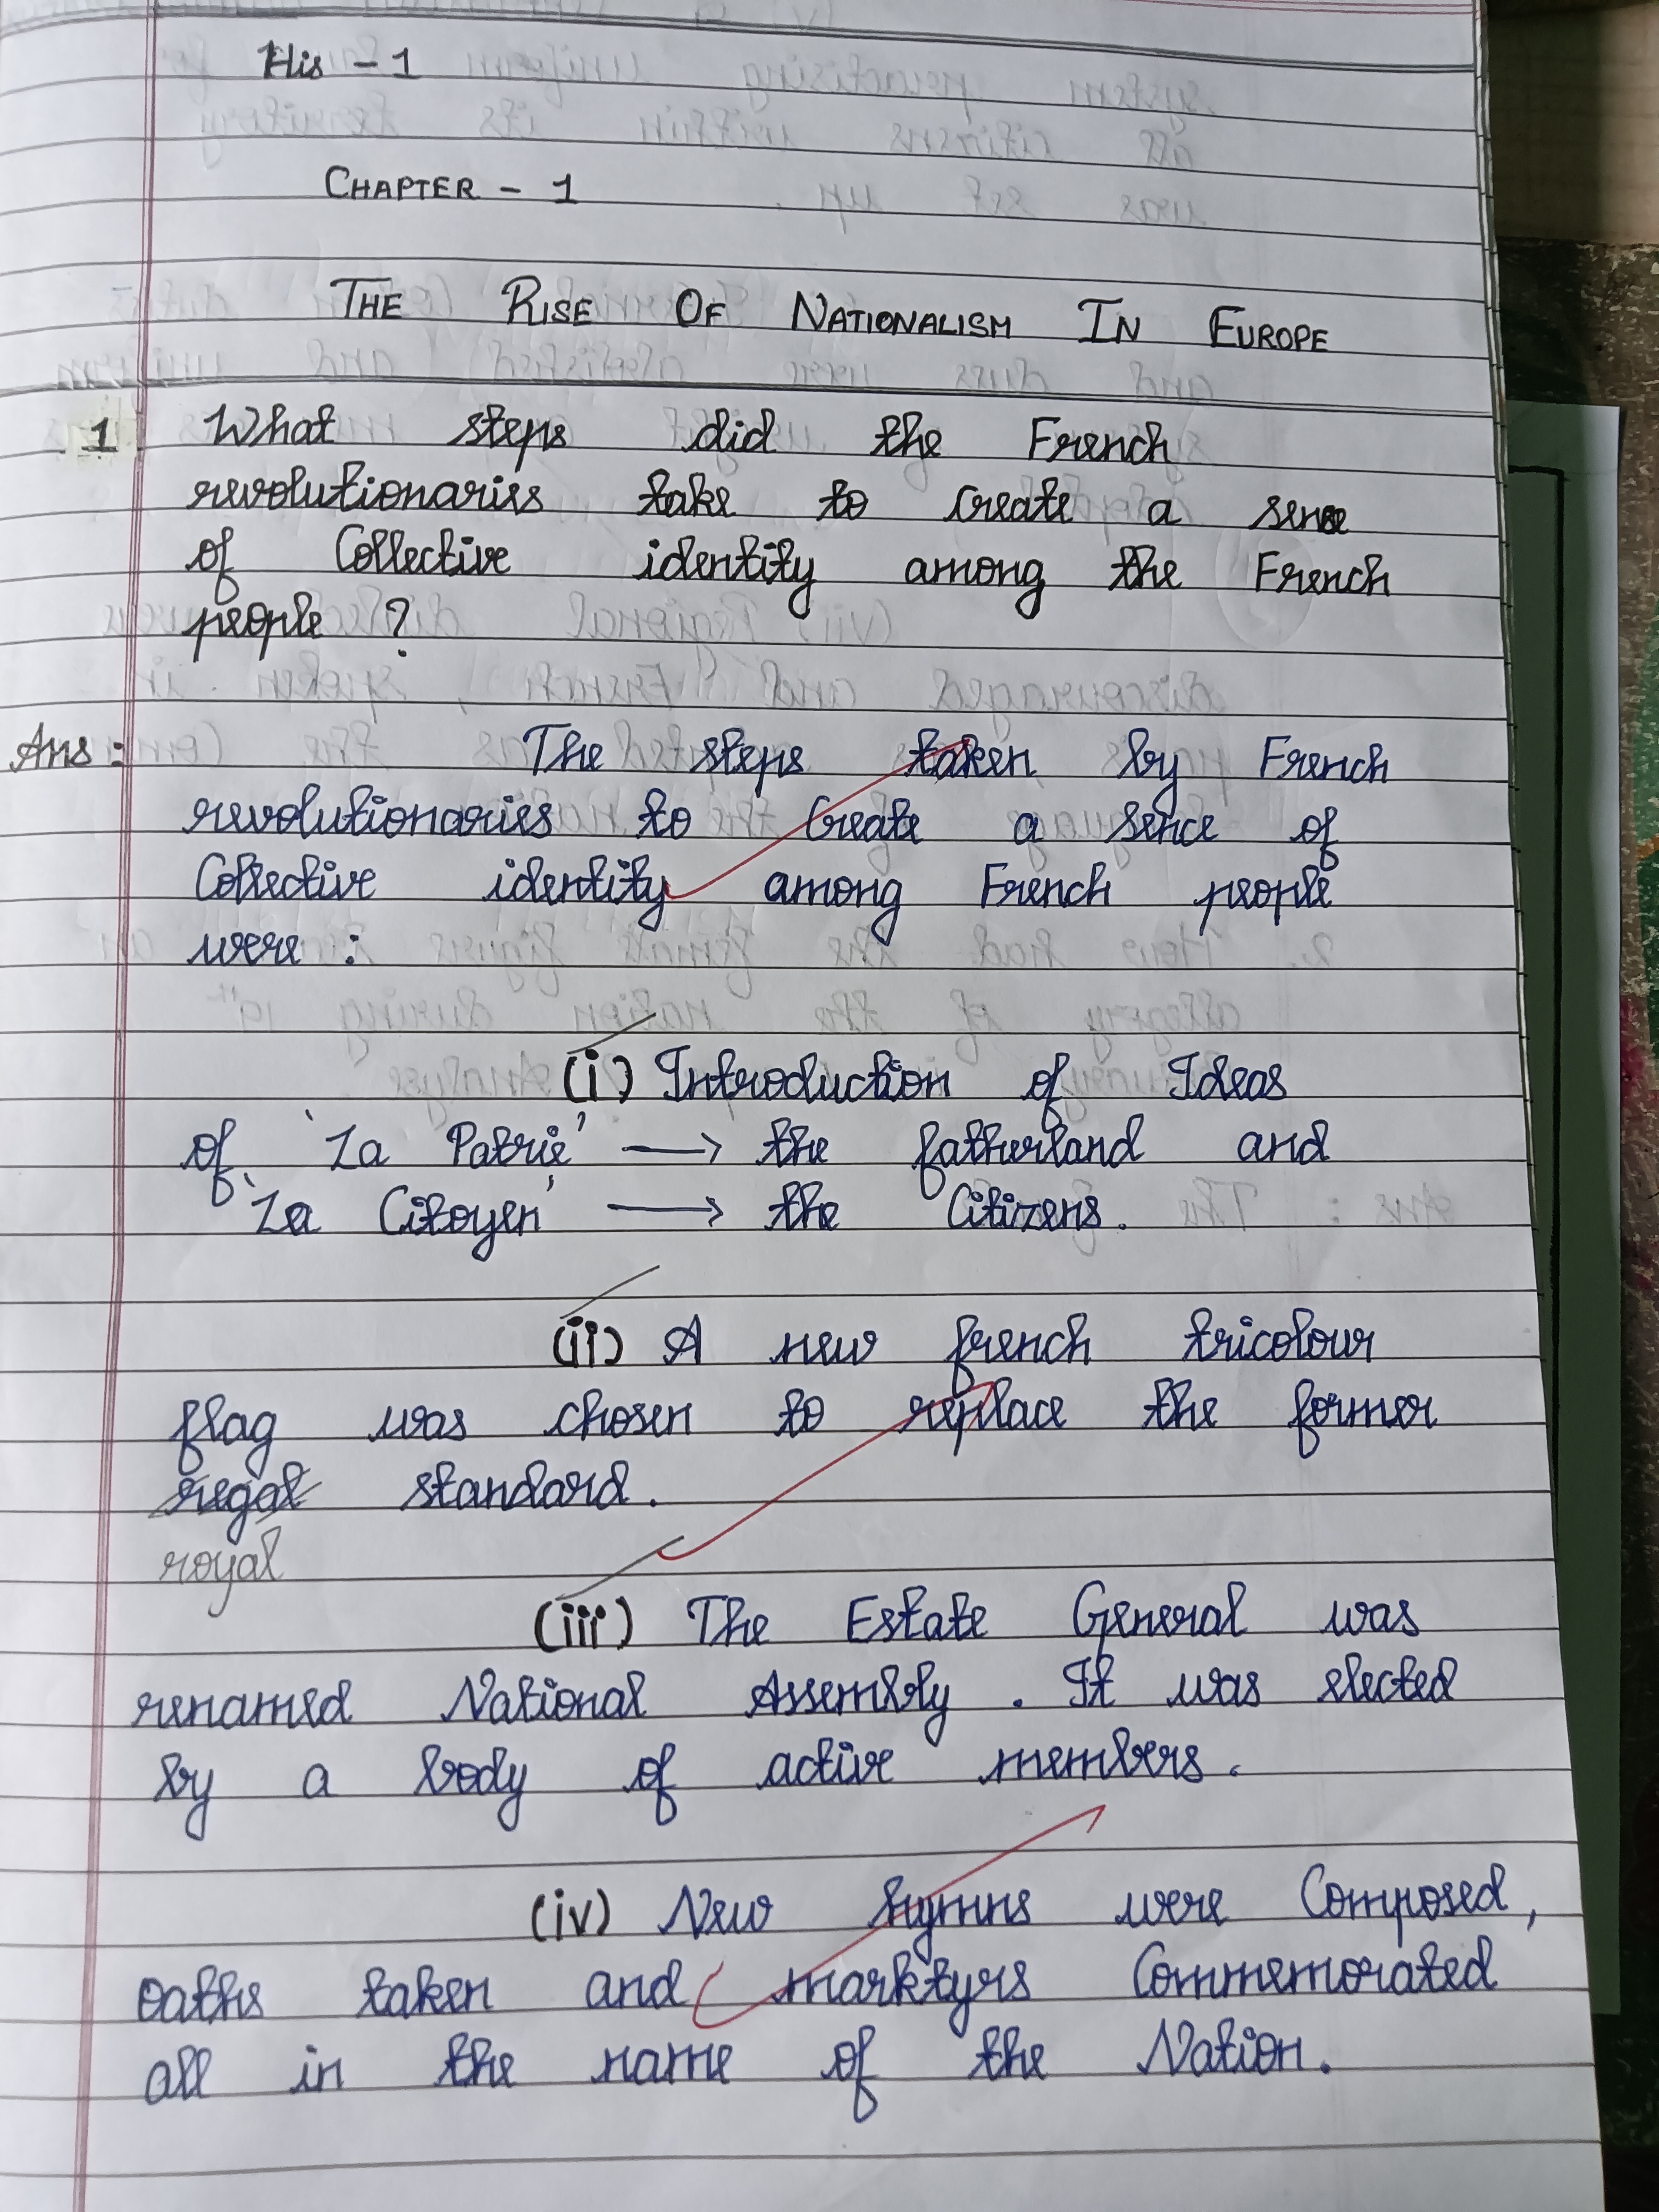 His - 1
CHAPTER - 1
THE RISE OF NATIONALISM IN EUROPE
1 What steps did the French
revolutionaries take to create a sense
of Collective identity among the French
people ?
Ans : The steps taken by French
revolutionaries to Create a sence of
Collective identity among French people
were :
(i) Introduction of Ideas
of 'La Patrie' → the fatherland and
'La Citoyen' → the Citizens.
(ii) A new french tricolour
flag was chosen to replace the former
regal standard.
royal
(iii) The Estate General was
renamed National Assembly . It was elected
by a body of active members.
(iv) New hymns were Composed,
oaths taken and marktyrs Commemorated
all in the name of the Nation.